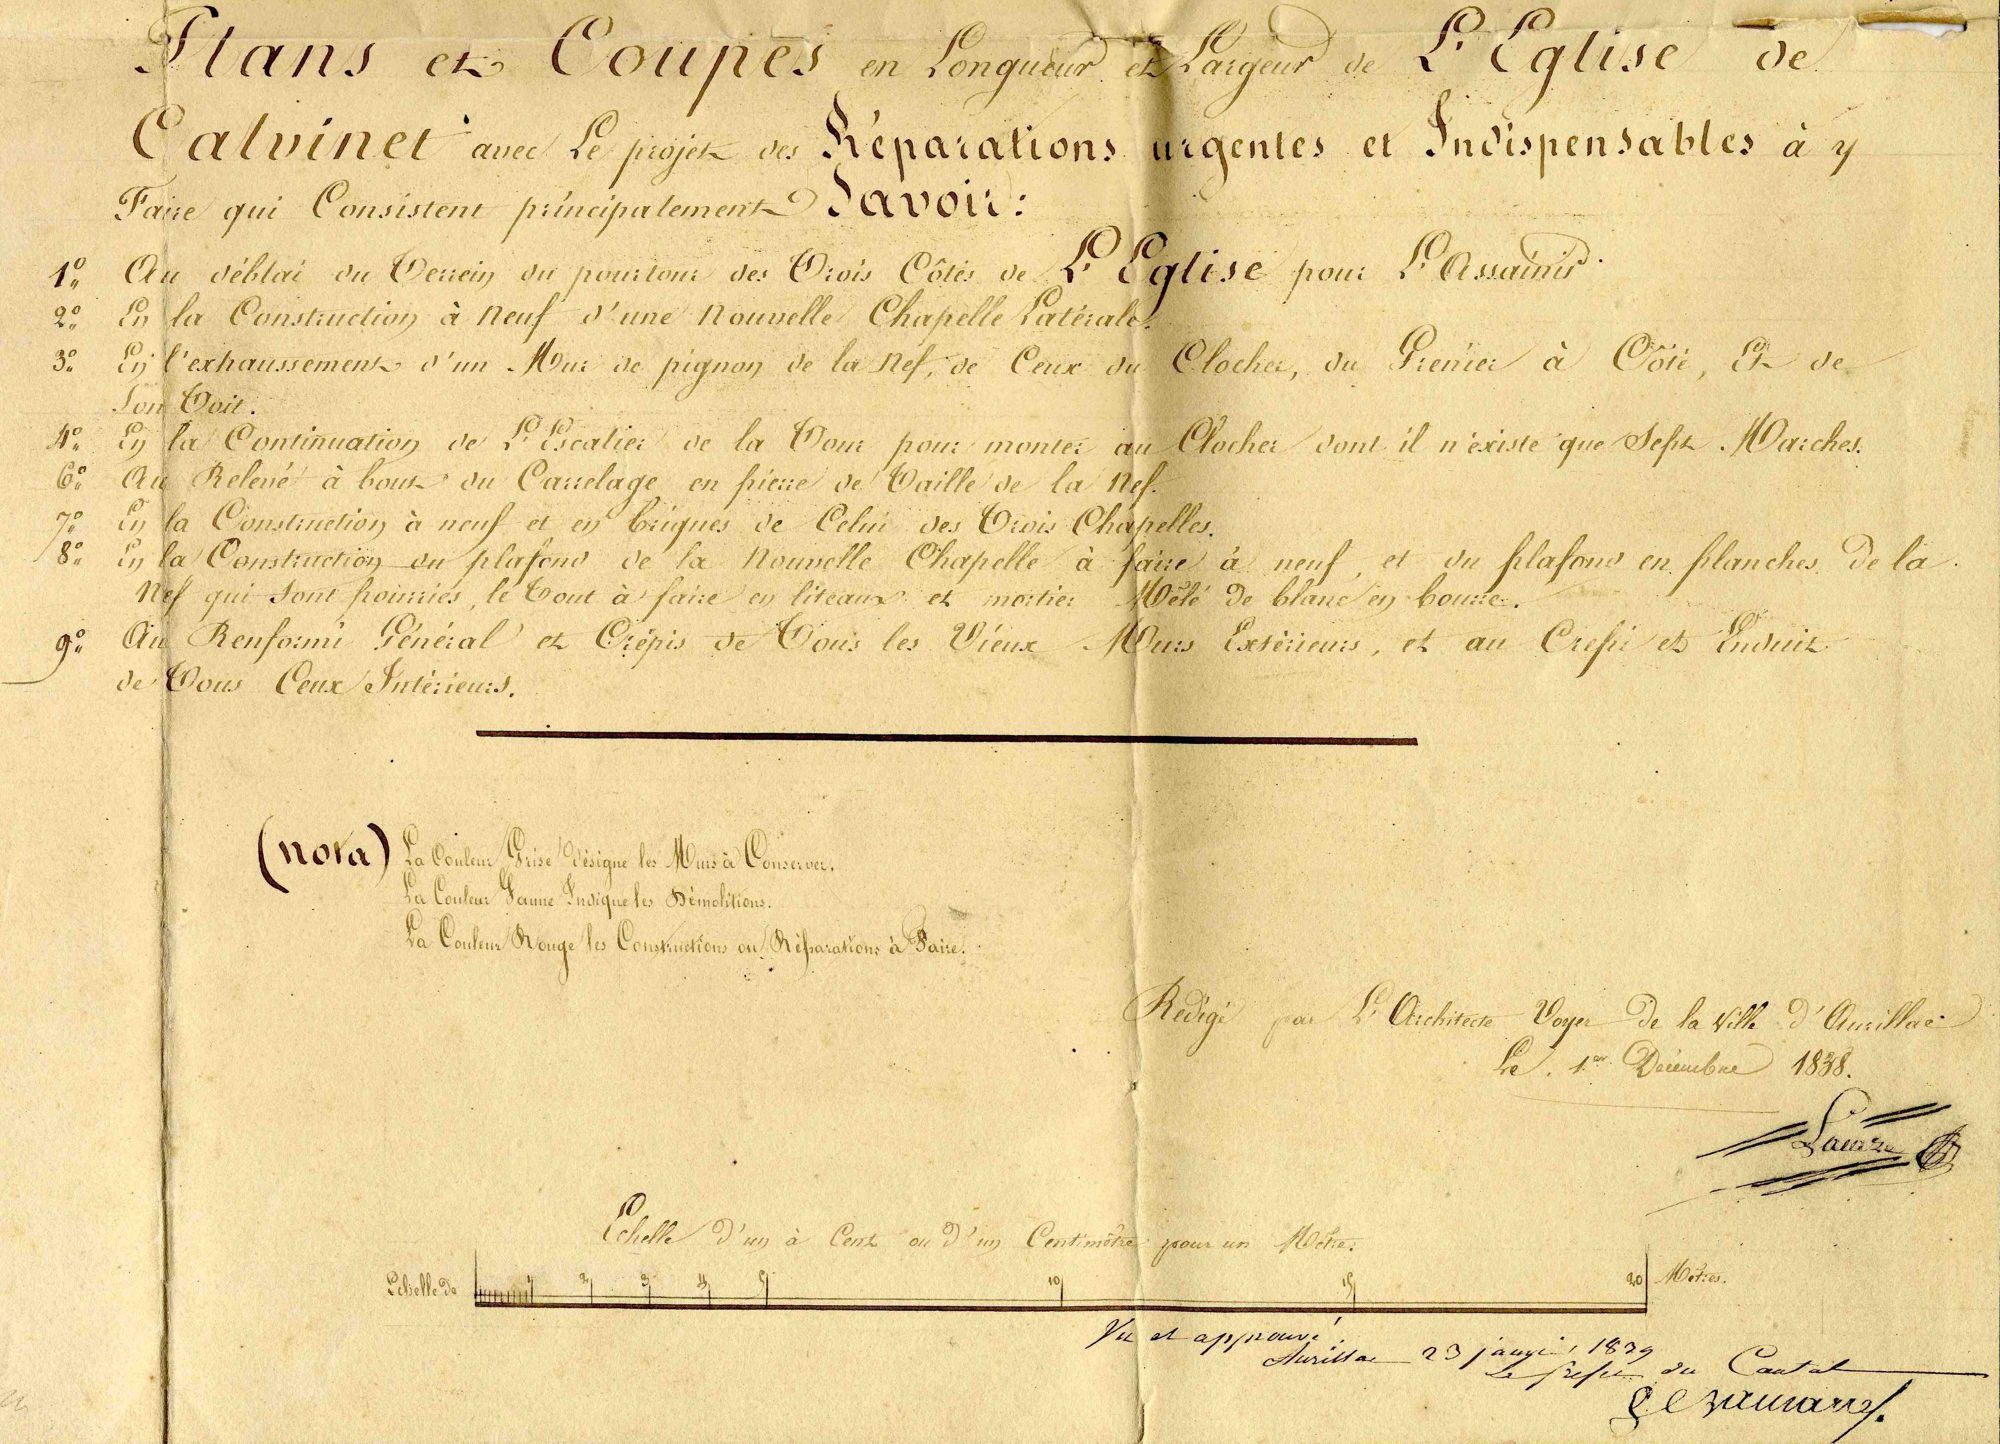 Plans et Coupes en Longueur et Largeur de L'Eglise de
Calvinet avec Le projet des Réparations urgentes et Indispensables à y
Faire qui Consistent principalement Savoir:
1° Au déblai du Terrein du pourtour des Trois Côtés de L'Eglise pour L'Assainir.
2° En la Construction à Neuf d'une Nouvelle Chapelle Latérale.
3° En l'exhaussement d'un Mur de pignon de la Nef, de Ceux du Clocher, du Grenier à Côté, Et de
Son Toit.
4° En la Continuation de L'Escalier de la Tour pour monter au Clocher dont il n'existe que Sept Marches.
6° Au Relevé à bout du Carrelage en pierre de Taille de la Nef.
7° En la Construction à neuf et en briques de Celui des Trois Chapelles.
8° En la Construction du plafond de la Nouvelle Chapelle à faire à neuf, et du plafond en planches De la
Nef qui Sont pourries, le Tout à faire en liteaux et mortier Mêlé de blanc en bourre.
9° Au Renformi Général et Crépis de Tous les Vieux Murs Extérieurs, et au Crepi et Enduit
de Tous Ceux Intérieurs.
(nota) La Couleur Grise désigne les Murs à Conserver.
La Couleur Jaune Indique les Démolitions.
La Couleur Rouge les Constructions ou Réparations à Faire.
Rédigé par L'Architecte Voyer De la Ville d'Aurillac
Le 1er Décembre 1838.
Echelle D'un à Cent ou D'un Centimètre pour un Mètre.
Echelle De 1 2 3 4 5 10 15 20 Mètres.
Vu et approuvé
Aurillac 23 janvier 1839
Le Préfet du Cantal